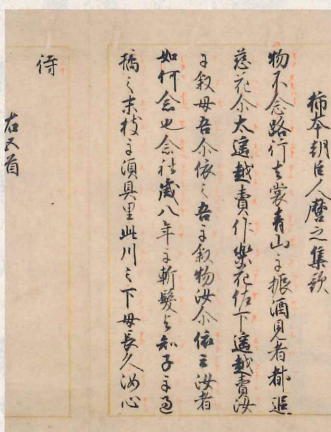 柿本朝臣人麿之集歌
物不念路行去裳青山乎振酒見者都追
慈花尓太遥越賣作樂花佐下遥越賣汝
乎叙母吾尓依云吾乎叙物汝尓依云汝者
如何念也念社歳八年乎斬髪与和子乎過
橘之末枝乎須具里此川之下母長久汝心
待
右五首